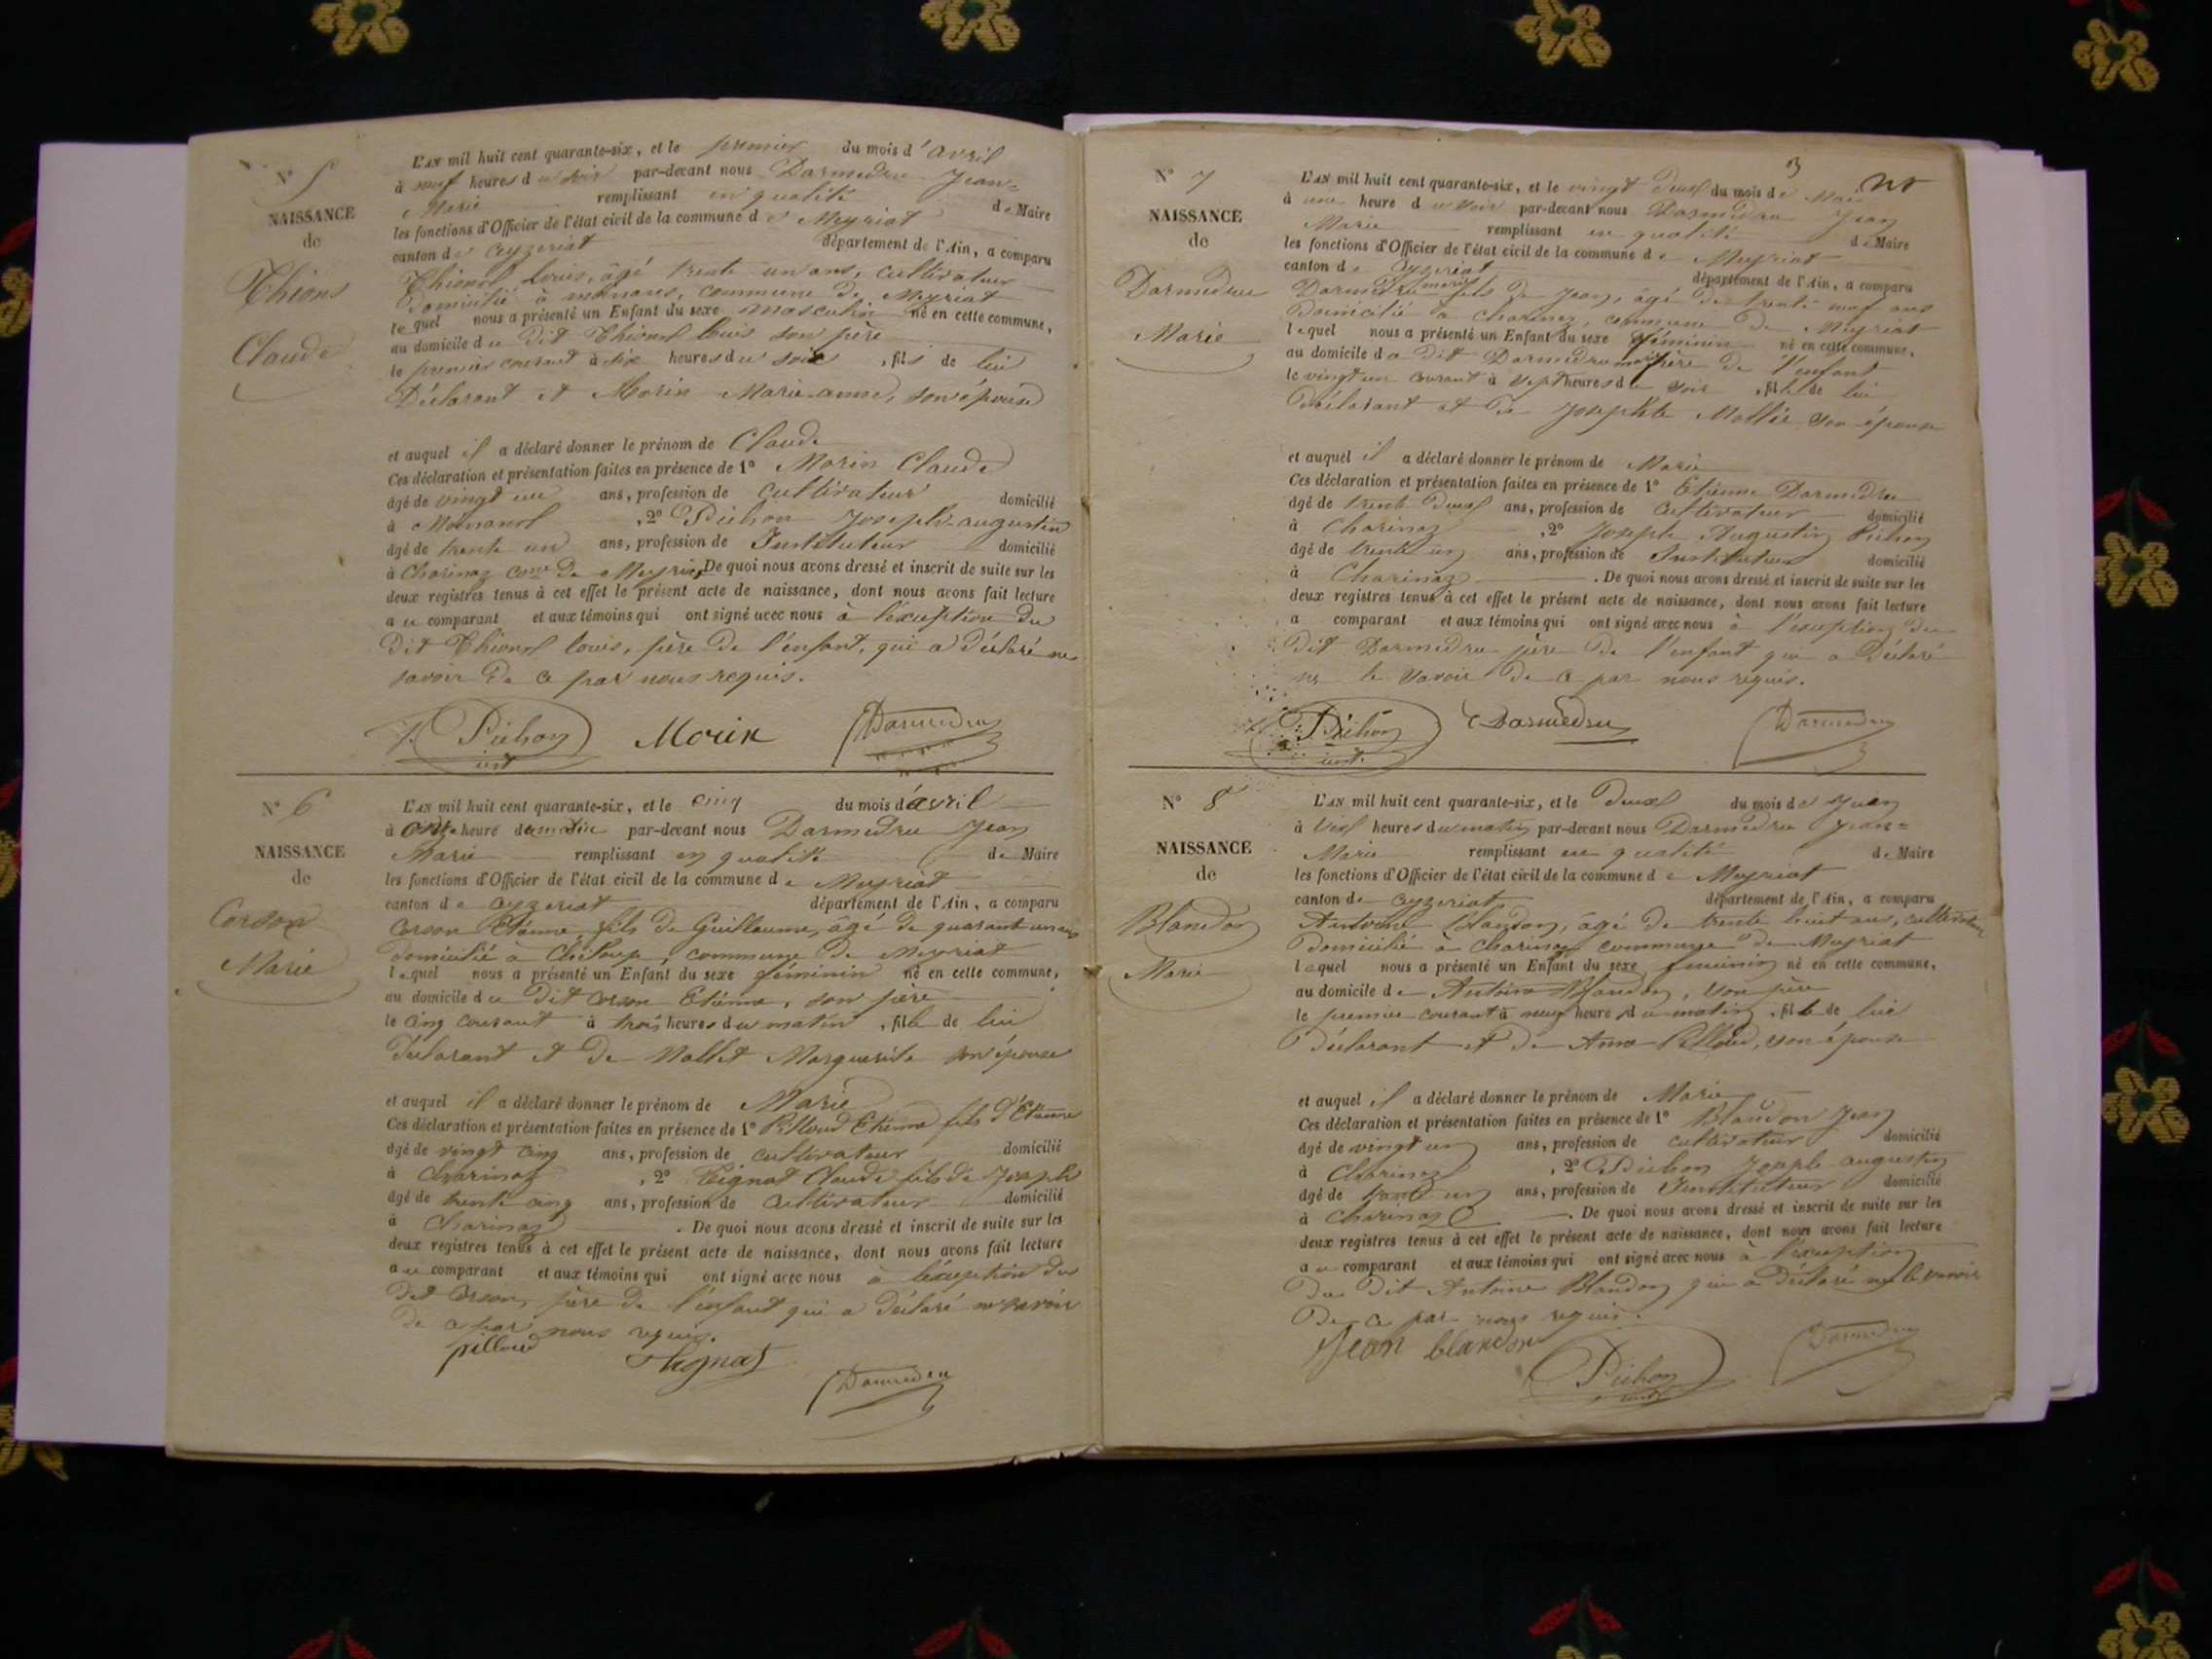 N° 5
NAISSANCE
de
Thions
Claude
L'AN mil huit cent quarante-six, et le premier du mois d'avril
à neuf heures du soir par-devant nous Darmedru Jean-
Marie remplissant en qualité de Maire
les fonctions d'Officier de l'état civil de la commune de Meyriat
canton de Ceyzeriat département de l'Ain, a comparu
Louis, âgé trente un ans, cultivateur
Domicilié à commune de Meyriat
lequel nous a présenté un Enfant du sexe masculin né en cette commune,
au domicile du dit Louis son père
le premier courant à six heures du soir, fils de lui
Déclarant et Morin Marie-anne, son épouse
et auquel il a déclaré donner le prénom de Claude
Ces déclaration et présentation faites en présence de 1° Morin Claude
âgé de vingt un ans, profession de cultivateur domicilié
à , 2° Pichon Joseph-augustin
âgé de trente un ans, profession de Instituteur domicilié
à Charinaz Cne de Meyriat De quoi nous avons dressé et inscrit de suite sur les
deux registres tenus à cet effet le présent acte de naissance, dont nous avons fait lecture
au comparant et aux témoins qui ont signé avec nous à l'exception du
Dit Louis, père de l'enfant, qui a déclaré ne
savoir de ce par nous requis.
Pichon inst Morin Darmedru
N° 6
NAISSANCE
de
Corson
Marie
L'AN mil huit cent quarante-six, et le cinq du mois d'avril
à onze heure du matin par-devant nous Darmedru Jean
Marie remplissant en qualité de Maire
les fonctions d'Officier de l'état civil de la commune de Meyriat
canton de Ceyzeriat département de l'Ain, a comparu
Corson Etienne, fils de Guillaume, âgé de quarant un ans
Domicilié à Chiloup, commune de Meyriat
lequel nous a présenté un Enfant du sexe féminin né en cette commune,
au domicile du Dit Corson Etienne, son père
le cinq courant à trois heures du matin, fille de lui
Déclarant et de Mallet Marguerite son épouse
et auquel il a déclaré donner le prénom de Marie
Ces déclaration et présentation faites en présence de 1° Pilloud Etienne fils d'Etienne
âgé de vingt cinq ans, profession de cultivateur domicilié
à Charinaz , 2° Claude fils de Joseph
âgé de trente cinq ans, profession de cultivateur domicilié
à Charinaz . De quoi nous avons dressé et inscrit de suite sur les
deux registres tenus à cet effet le présent acte de naissance, dont nous avons fait lecture
au comparant et aux témoins qui ont signé avec nous à l'éxception du
Dit Corson, père de l'enfant qui a déclaré ne savoir
De ce par nous requis.
pilloud Darmedru
3
N° 7
NAISSANCE
de
Darmedru
Marie
L'AN mil huit cent quarante-six, et le vingt Deux du mois de Mai
à une heure du soir par-devant nous Darmedru Jean
Marie remplissant en qualité de Maire
les fonctions d'Officier de l'état civil de la commune de Meyriat
canton de Ceyzeriat département de l'Ain, a comparu
Darmedru fils de Jean, âgé de trente neuf ans
Domicilié à Charinaz, commune de Meyriat
lequel nous a présenté un Enfant du sexe féminin né en cette commune,
au domicile du dit Darmedru père de l'enfant
le vingt un courant à sept heures du soir, fille de lui
Déclarant et de Josephte Mallet son épouse
et auquel il a déclaré donner le prénom de Marie
Ces déclaration et présentation faites en présence de 1° Etienne Darmedru
âgé de trente Deux ans, profession de cultivateur domicilié
à Charinaz , 2° Joseph Augustin Pichon
âgé de trente un ans, profession de Instituteur domicilié
à Charinaz . De quoi nous avons dressé et inscrit de suite sur les
deux registres tenus à cet effet le présent acte de naissance, dont nous avons fait lecture
a comparant et aux témoins qui ont signé avec nous à l'exception du
Dit Darmedru père de l'enfant qui a Déclaré
ne le savoir De ce par nous requis.
Pichon inst. Darmedru Darmedru
N° 8
NAISSANCE
de
Blandon
Marie
L'AN mil huit cent quarante-six, et le Deux du mois de Juin
à heures du matin par-devant nous Darmedru Jean-
Marie remplissant en qualité de Maire
les fonctions d'Officier de l'état civil de la commune de Meyriat
canton de Ceyzeriat département de l'Ain, a comparu
Antoine Blandon, âgé de trente huit ans, cultivateur
Domicilié à Charinaz commune de Meyriat
lequel nous a présenté un Enfant du sexe féminin né en cette commune,
au domicile de Antoine Blandon, son père
le premier courant à neuf heures du matin, fille de lui
Déclarant et De Anne Pilloud, son épouse
et auquel il a déclaré donner le prénom de Marie
Ces déclaration et présentation faites en présence de 1° Blandon Jean
âgé de vingt un ans, profession de cultivateur domicilié
à Charinaz , 2° Pichon Joseph-augustin
âgé de trente un ans, profession de Instituteur domicilié
à Charinaz . De quoi nous avons dressé et inscrit de suite sur les
deux registres tenus à cet effet le présent acte de naissance, dont nous avons fait lecture
au comparant et aux témoins qui ont signé avec nous à l'exception
Du Dit Antoine Blandon qui a déclaré ne le savoir
De ce par nous requis.
Jean blandon Pichon inst Darmedru